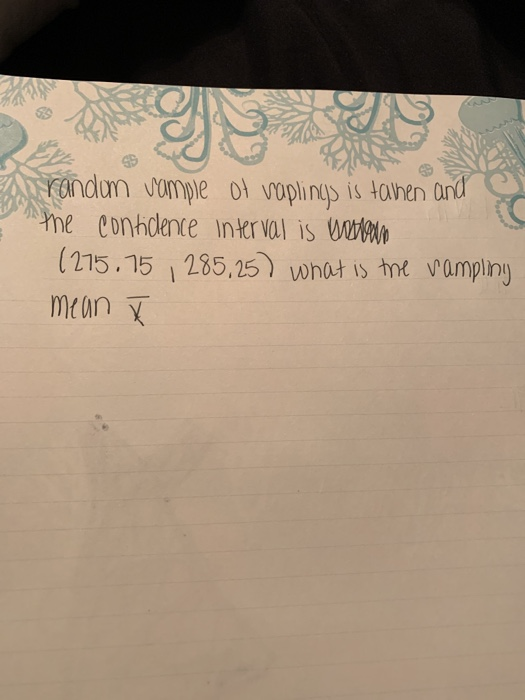 random sample of saplings is taken and
the confidence interval is
(275.75, 285.25) what is the sampling
mean x̄